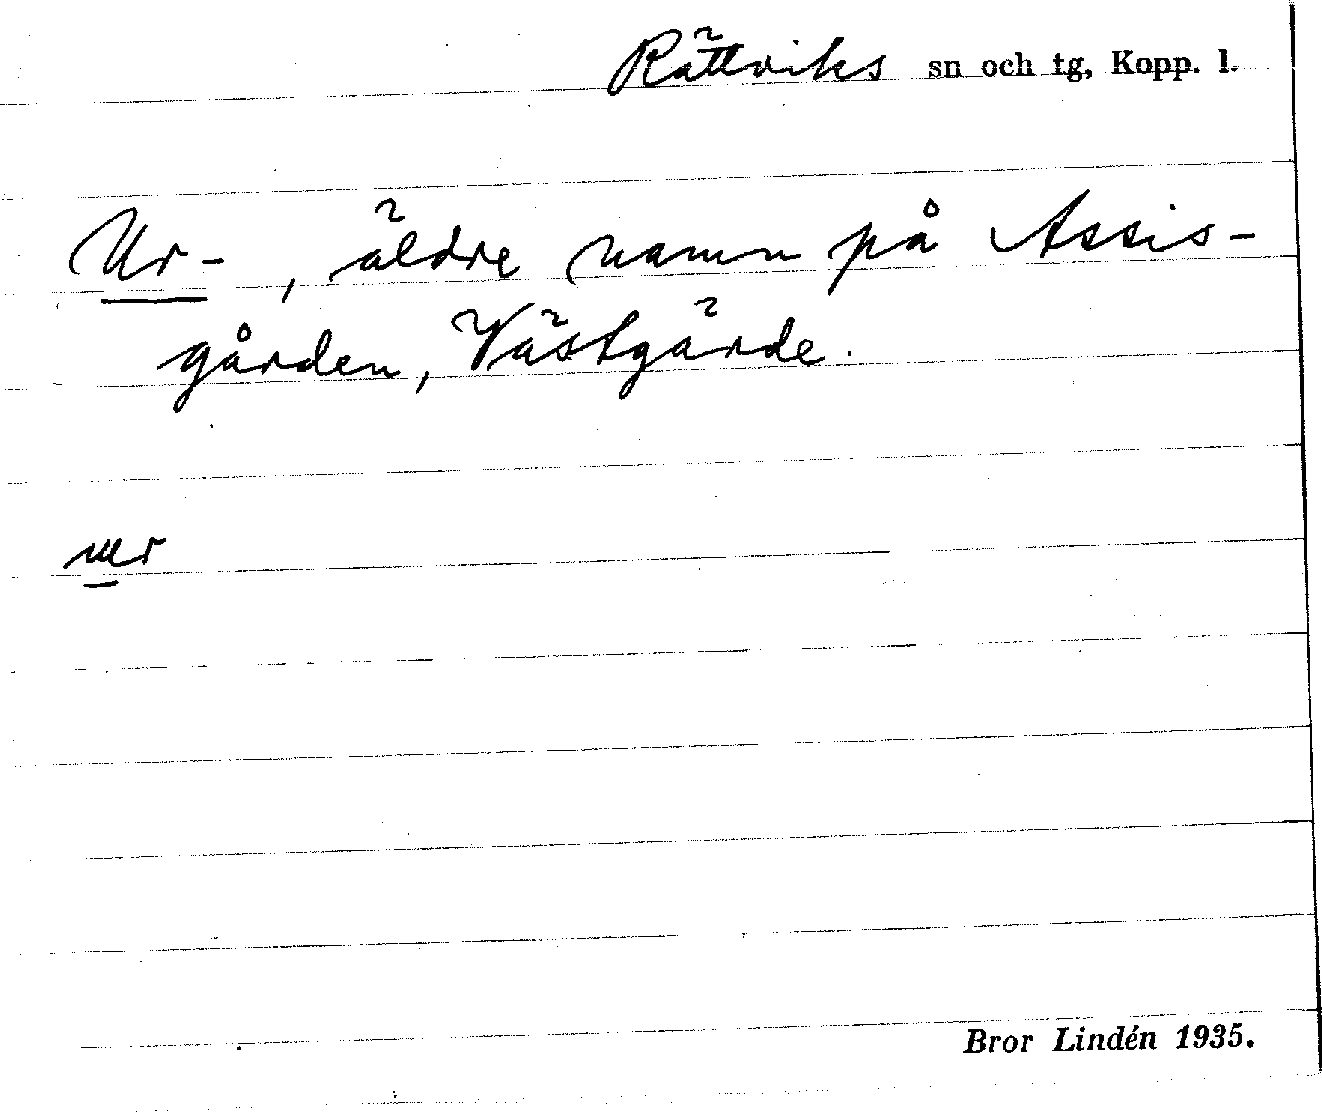 Rättviks sn och tg, Kopp. l.
Ur-, äldre namn på Assis-
gården, Västgärde.
ur
Bror Lindén 1935.